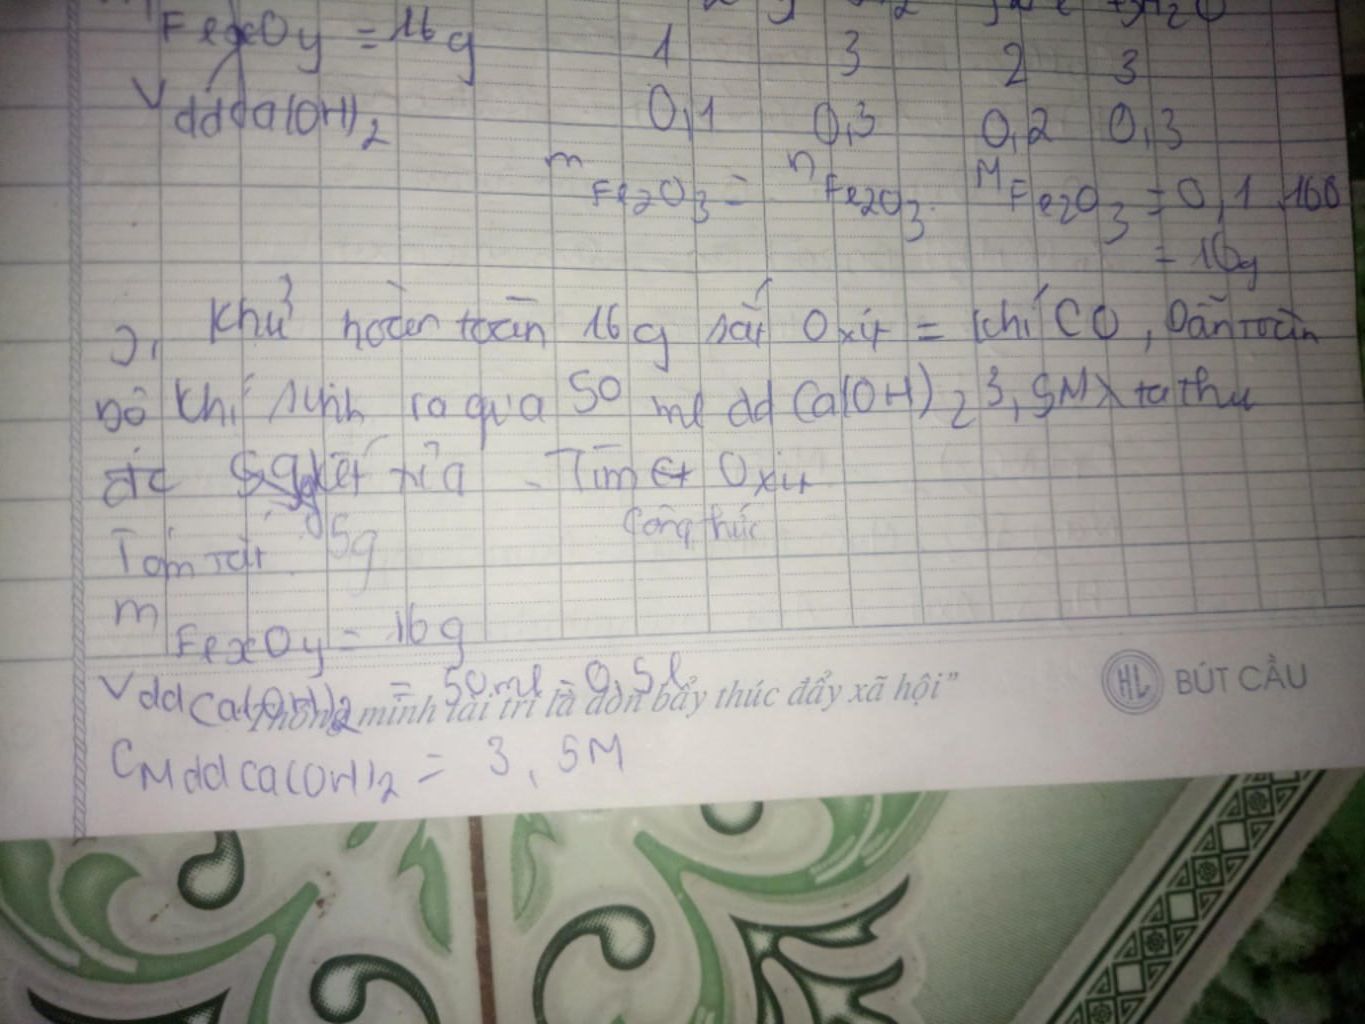 FexOy = 16g
1 3 2 3
Vdd Ca(OH)2
0,1 0,3 0,2 0,3
mFe2O3 = nFe2O3 . MFe2O3 = 0,1 . 160
= 16g
Khử hoàn toàn 16g sắt Oxit = khí CO, Dẫn toàn
bộ khí sinh ra qua 50 ml dd Ca(OH)2 3,5M ta thu
đc 5g kết tủa - Tìm Ct Oxit
Công thức
Tóm tắt 5g
mFexOy = 16g
Vdd Ca(OH)2 = 50ml = 0,5l
"Thông minh tài trí là đòn bẩy thúc đẩy xã hội"
HL BÚT CẦU
CM dd Ca(OH)2 = 3,5M